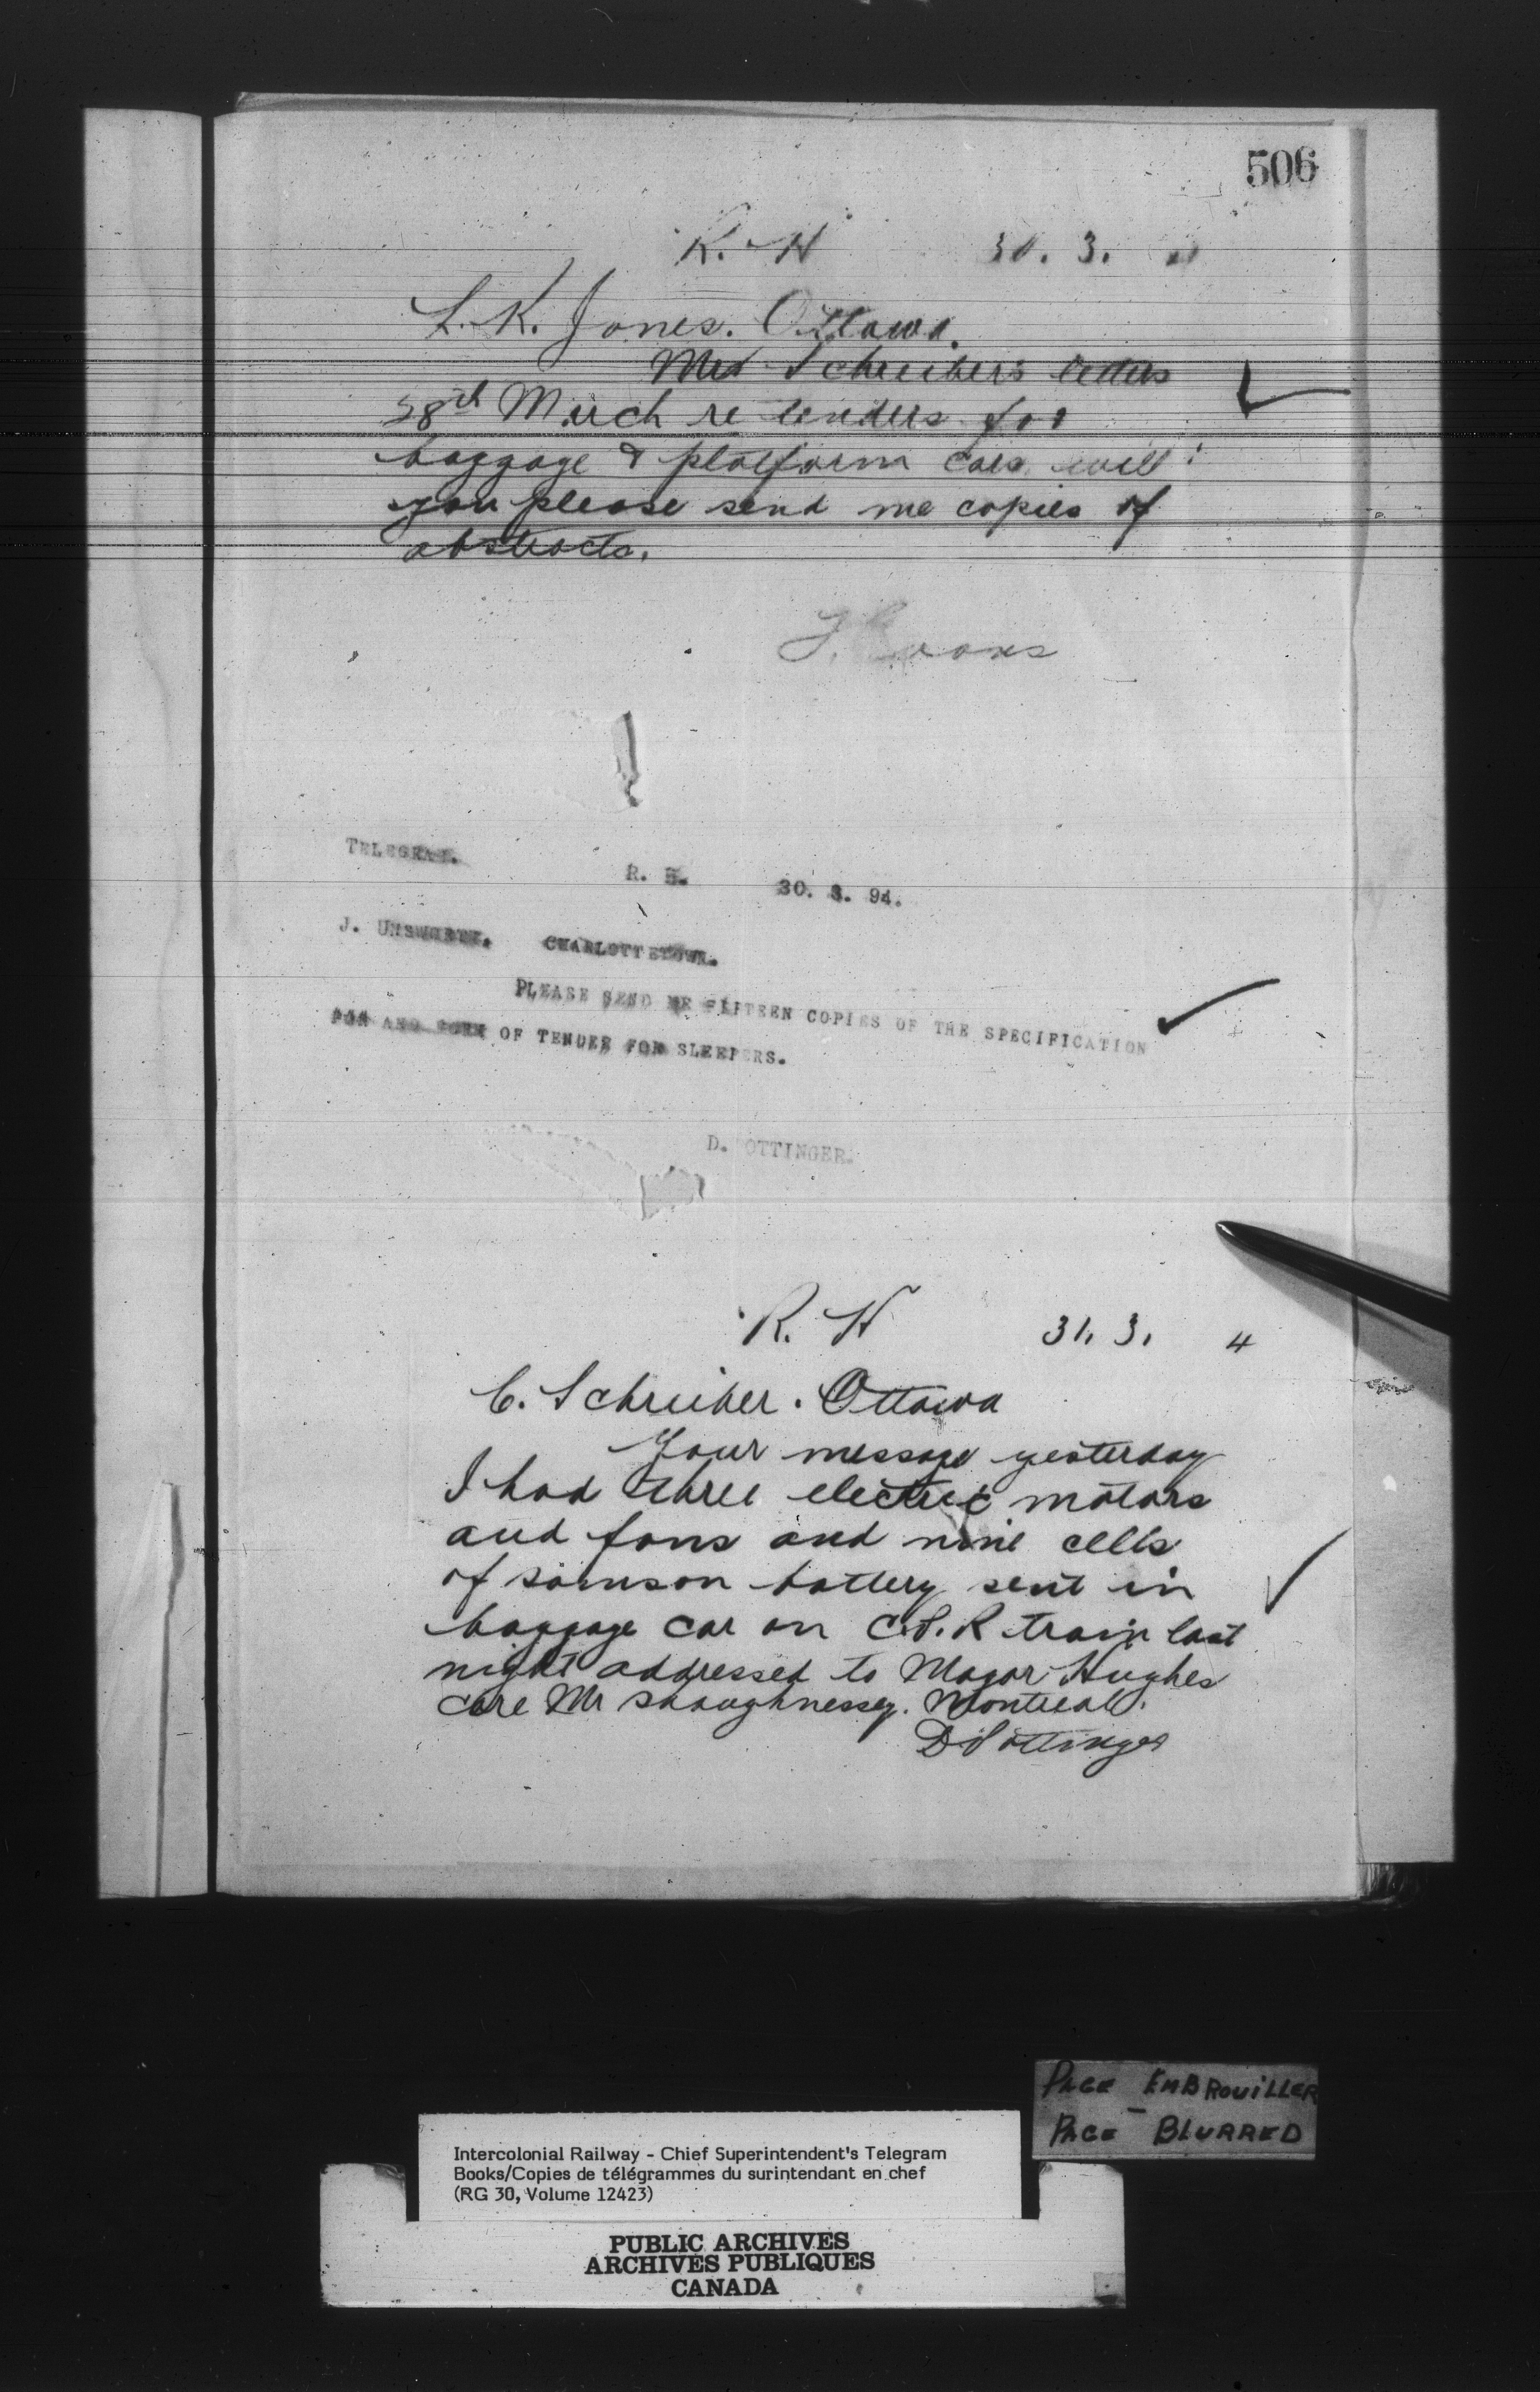 506
R. H 30. 3.
L. K. Jones. Ottawa.
Mr Schreiber's letters
28th March re tenders for
baggage & platform cars will
you please send me copies of
abstracts.
F. Evans
TELEGRAM.
R. H. 30. 3. 94.
J. UNSWORTH. CHARLOTTETOWN.
PLEASE SEND ME FIFTEEN COPIES OF THE SPECIFICATION
FOR AND FORM OF TENDER FOR SLEEPERS.
D. OTTINGER.
R. H 31. 3. 4
C. Schreiber. Ottawa
Your message yesterday
I had three electric motors
and fans and nine cells
of samson battery sent in
baggage car on C.P.R train last
night addressed to Magor Hughes
care Mr Shaughnessy. Montreal.
D Pottinger
PAGE EMBROUILLER
PAGE - BLURRED
Intercolonial Railway - Chief Superintendent's Telegram
Books/Copies de télégrammes du surintendant en chef
(RG 30, Volume 12423)
PUBLIC ARCHIVES
ARCHIVES PUBLIQUES
CANADA